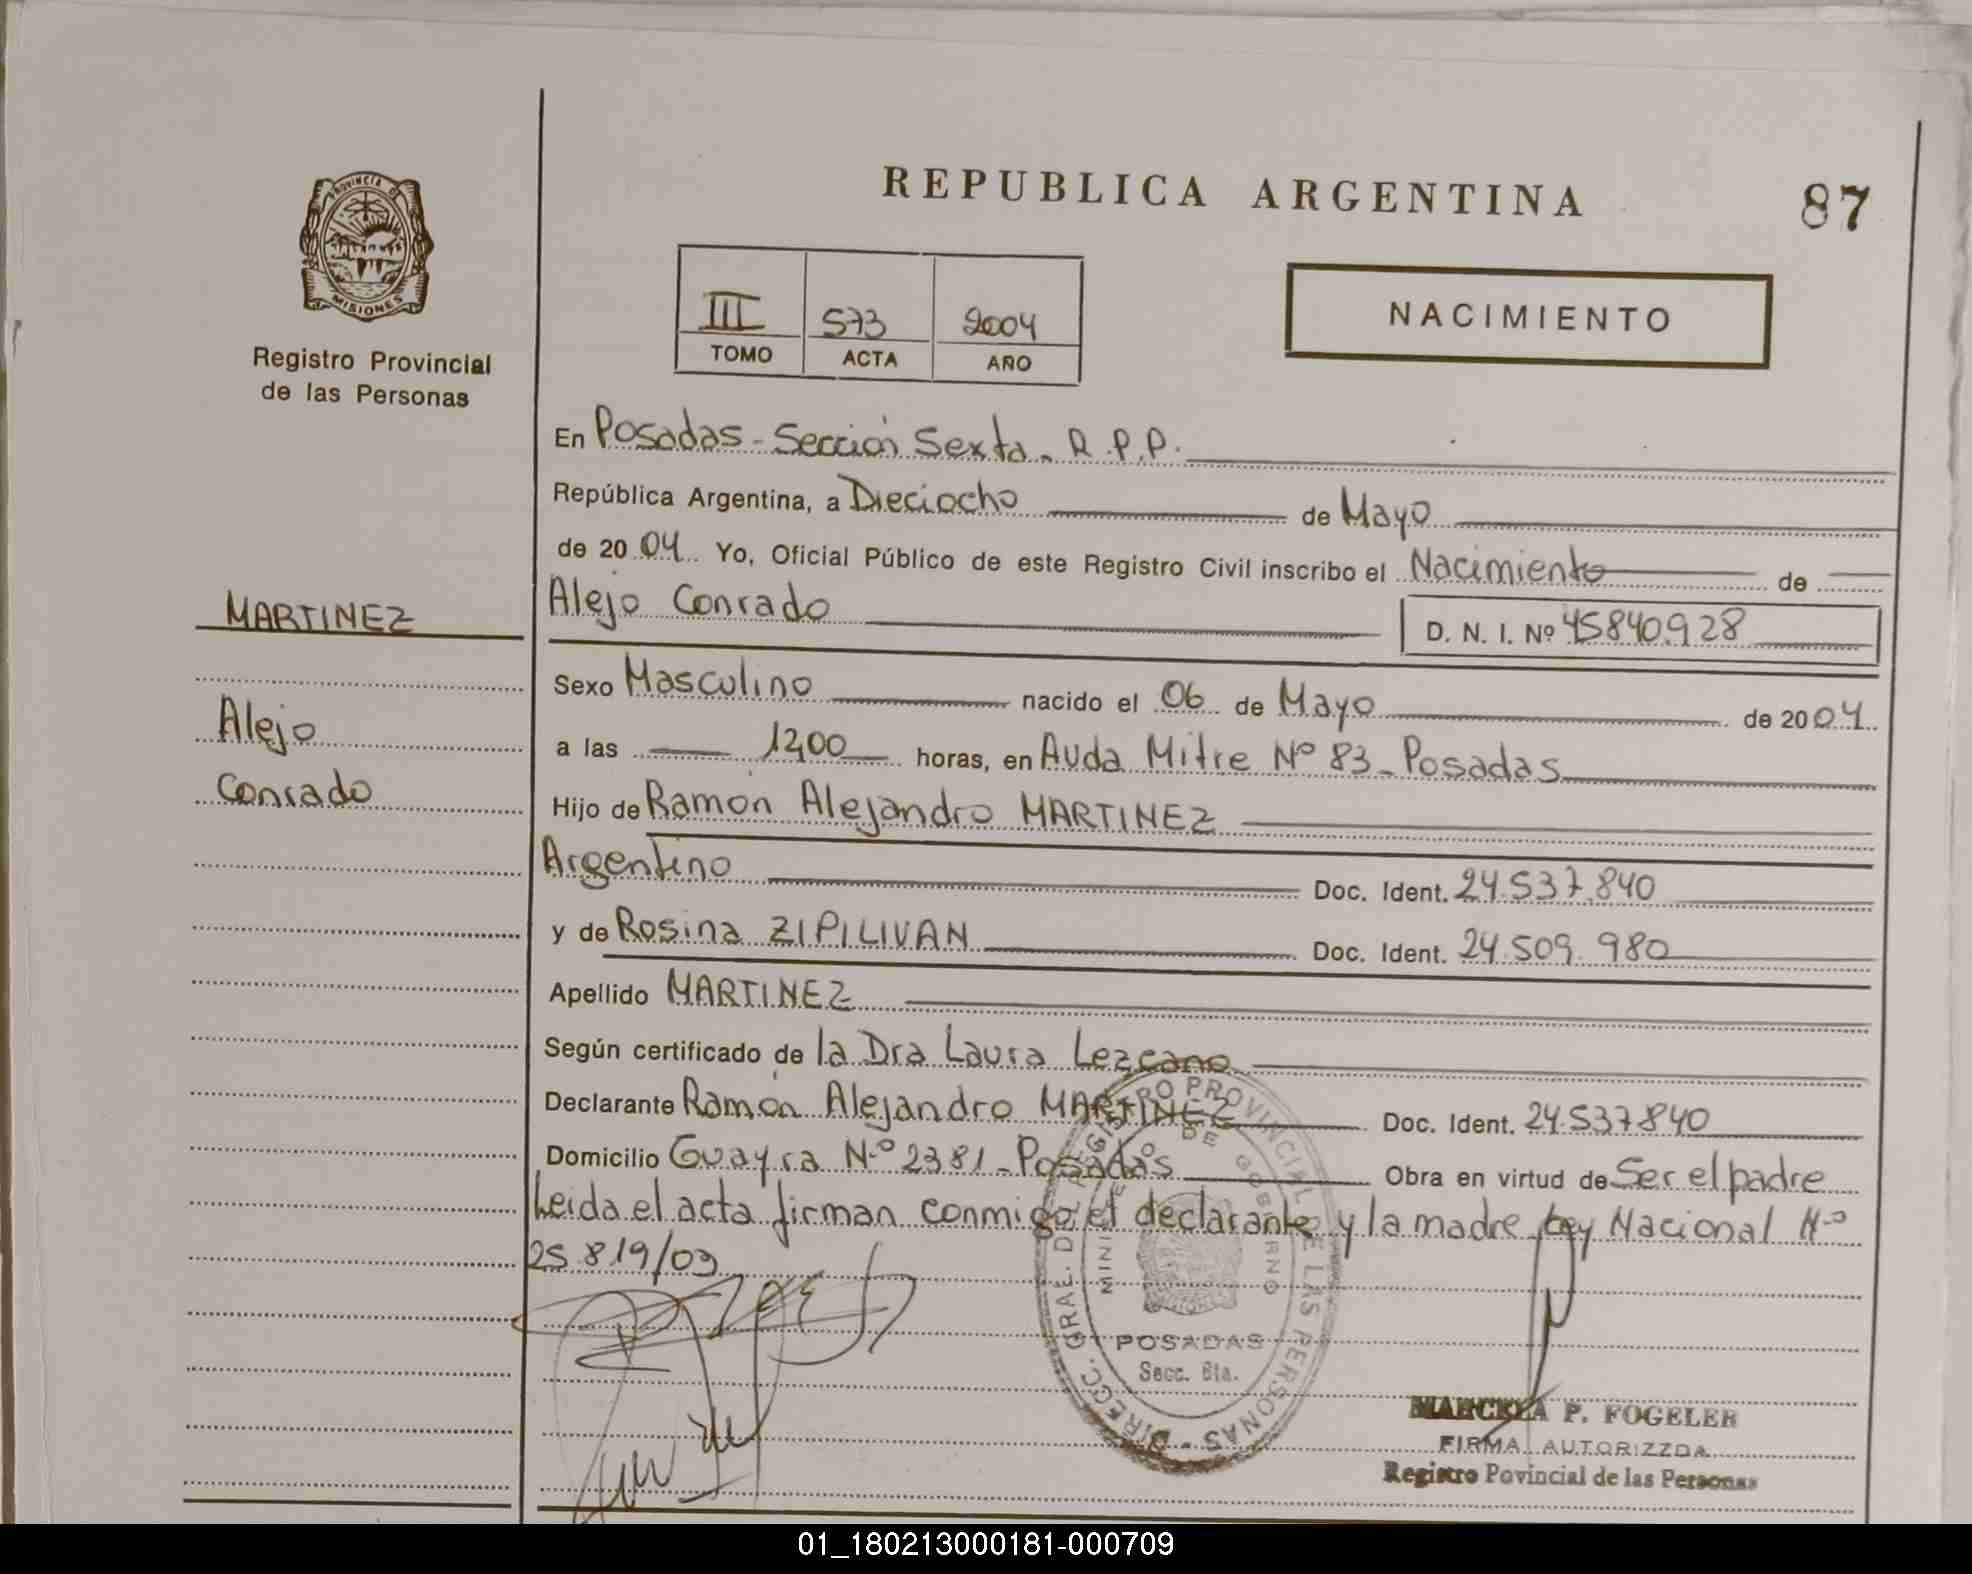 REPUBLICA ARGENTINA
87
PROVINCIA DE
MISIONES
Registro Provincial
de las Personas
III 573 2004
TOMO ACTA AÑO
NACIMIENTO
En Posadas - Sección Sexta - R.P.P.
República Argentina, a Dieciocho de Mayo
de 2004 Yo, Oficial Público de este Registro Civil inscribo el Nacimiento de
Alejo Conrado D. N. I. Nº 45840.928
MARTINEZ
Alejo
Conrado
Sexo Masculino nacido el 06 de Mayo de 2004
a las 12,00 horas, en Avda Mitre Nº 83 - Posadas
Hijo de Ramón Alejandro MARTINEZ
Argentino Doc. Ident. 24.537.840
y de Rosina ZIPILIVAN Doc. Ident. 24.509.980
Apellido MARTINEZ
Según certificado de la Dra Laura Lezcano
Declarante Ramón Alejandro MARTINEZ Doc. Ident. 24.537.840
Domicilio Guayra Nº 2381 - Posadas Obra en virtud de Ser el padre
Leida el acta firman conmigo el declarante y la madre Ley Nacional Nº
25.819/03
DIRECC. GRAL. DEL REGISTRO PROVINCIAL DE LAS PERSONAS
MINISTERIO DE GOBIERNO
POSADAS
Secc. 6ta.
MARCELA P. FOGELER
FIRMA AUTORIZZDA
Registro Povincial de las Personas
01_180213000181-000709